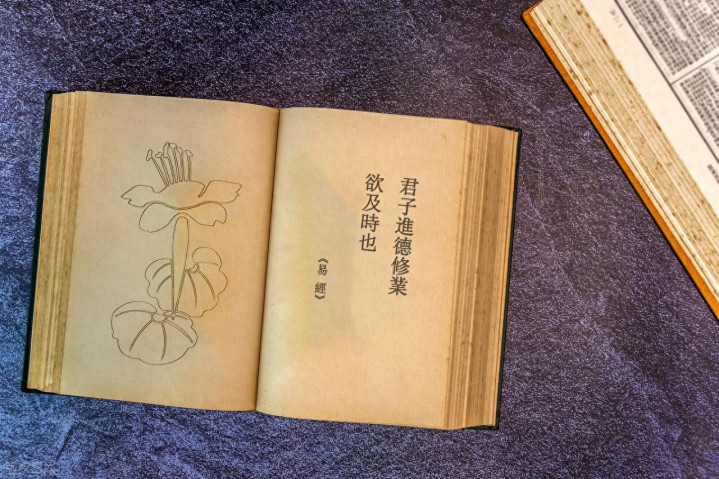 君子進德修業
欲及時也
《易經》